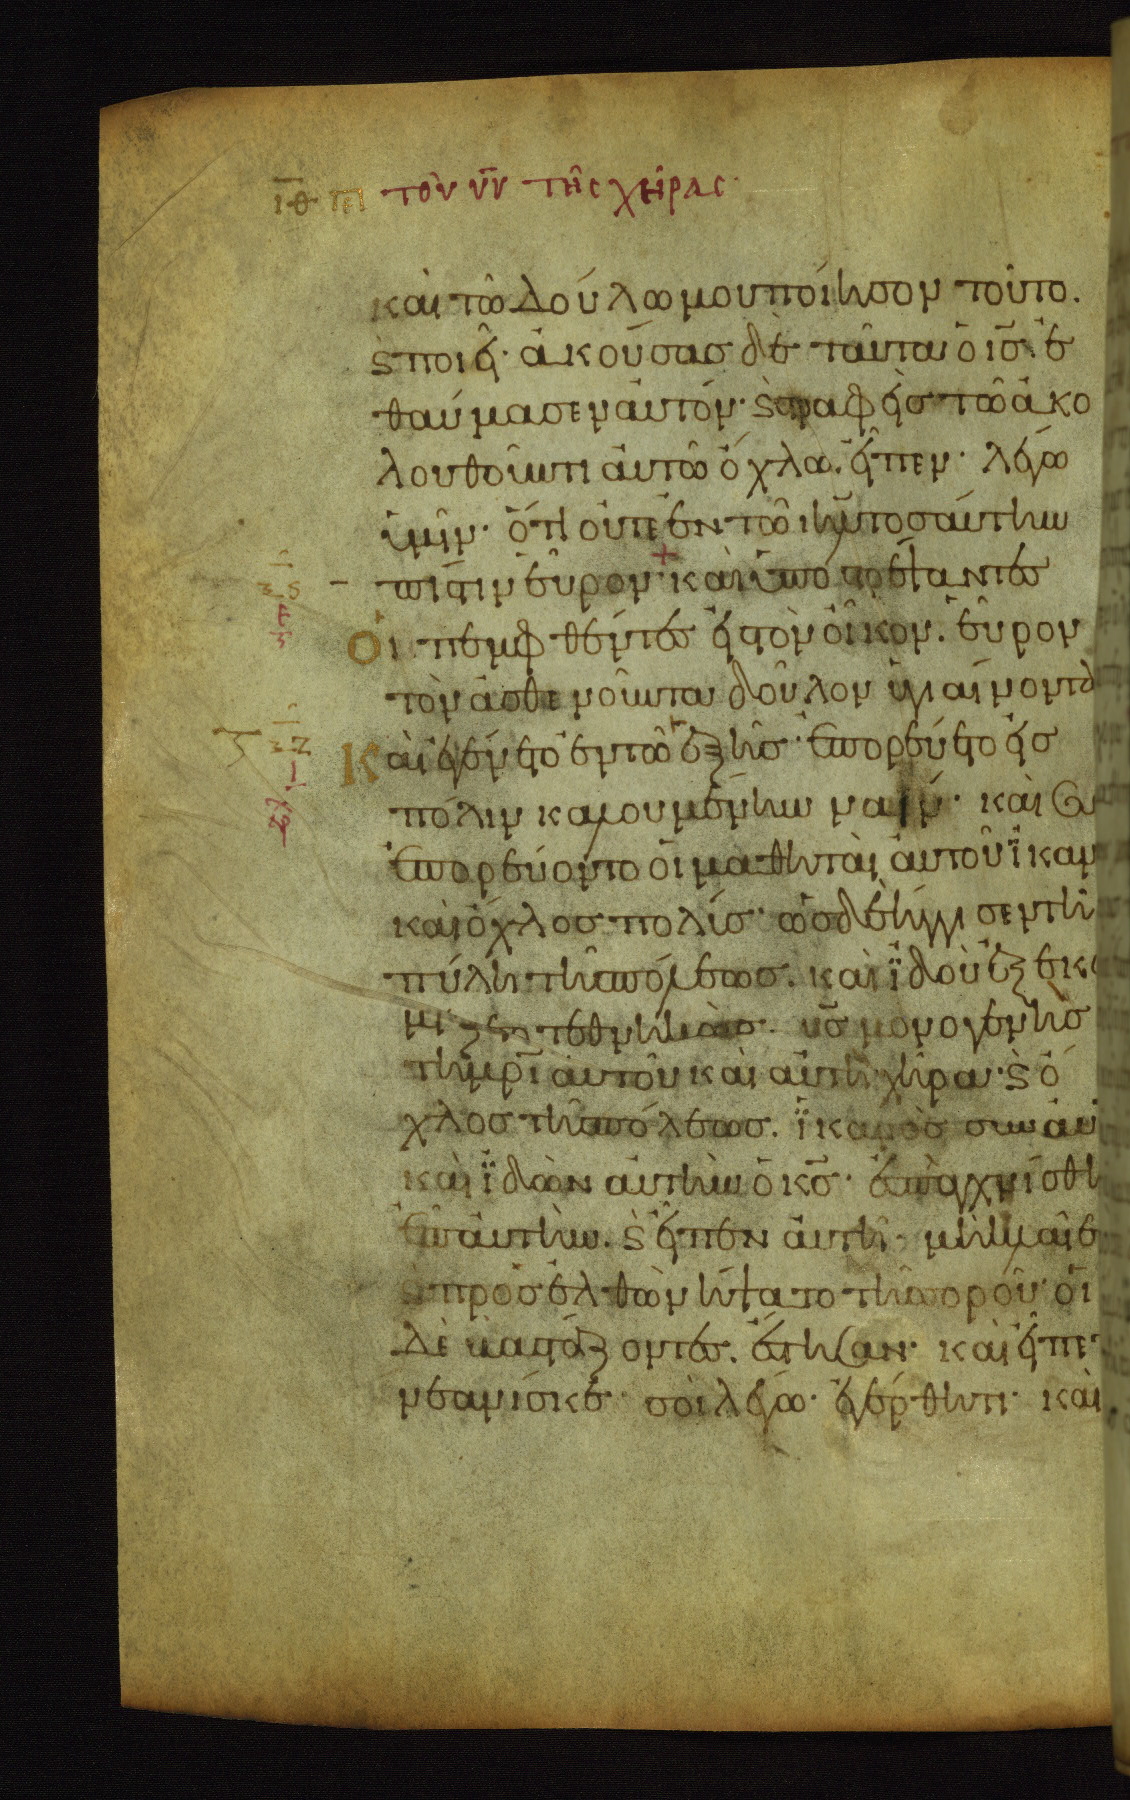 ι̅θ̅ πε τὸν υ̅ν̅ τῆς χήρας·
καὶ τῶ δούλω μου ποίησον τοῦτο.
ϗ ποιεῖ· ἀκούσας δὲ ταῦτα ὁ ι̅ς̅ ἐ
θαύμασεν αὐτόν· ϗ στραφεὶς τῶ ἀκο
λουθοῦντι αὐτῶ ὄχλω. εἶπεν· λέγω
ὑμῖν· ὅτι οὔτε ἐν τῶ ι̅η̅λ̅ τοσαύτην
πίστιν εὗρον· καὶ ὑποστρέψαντες
οἱ πεμφθέντες εἰς τὸν οἶκον. εὗρον
τὸν ἀσθενοῦντα δοῦλον ὑγιαίνοντα
Καὶ ἐγένετο ἐν τῶ ἑξῆς· ἐπορεύετο εἰς
πόλιν καλουμένην ναΐν· καὶ
ἐπορεύοντο οἱ μαθηταὶ αὐτοῦ ἱκαν
καὶ ὄχλος πολύς· ὡς δὲ ἤγγισεν τῆ
πύλη τῆς πόλεως. καὶ ἰδοὺ ἐξεκο
μίζετο τεθνηκὼς. υ̅ς̅ μονογενὴς
τῆ μ̅ρ̅ι̅ αὐτοῦ καὶ αὕτη χήρα· ϗ ὄ
χλος τῆς πόλεως. ἱκανὸς σὺν αὐ
καὶ ἰδὼν αὐτὴν ὁ κ̅ς̅· ἐσπλαγχνίσθη
ἐπ' αὐτὴν. ϗ εἶπεν αὐτῆ· μὴ κλαῖε
ϗ προσελθὼν ἥψατο τῆς σοροῦ· οἱ
δὲ βαστάζοντες. ἔστησαν· καὶ εἶπε
νεανίσκε· σοὶ λέγω· ἐγέρθητι· καὶ